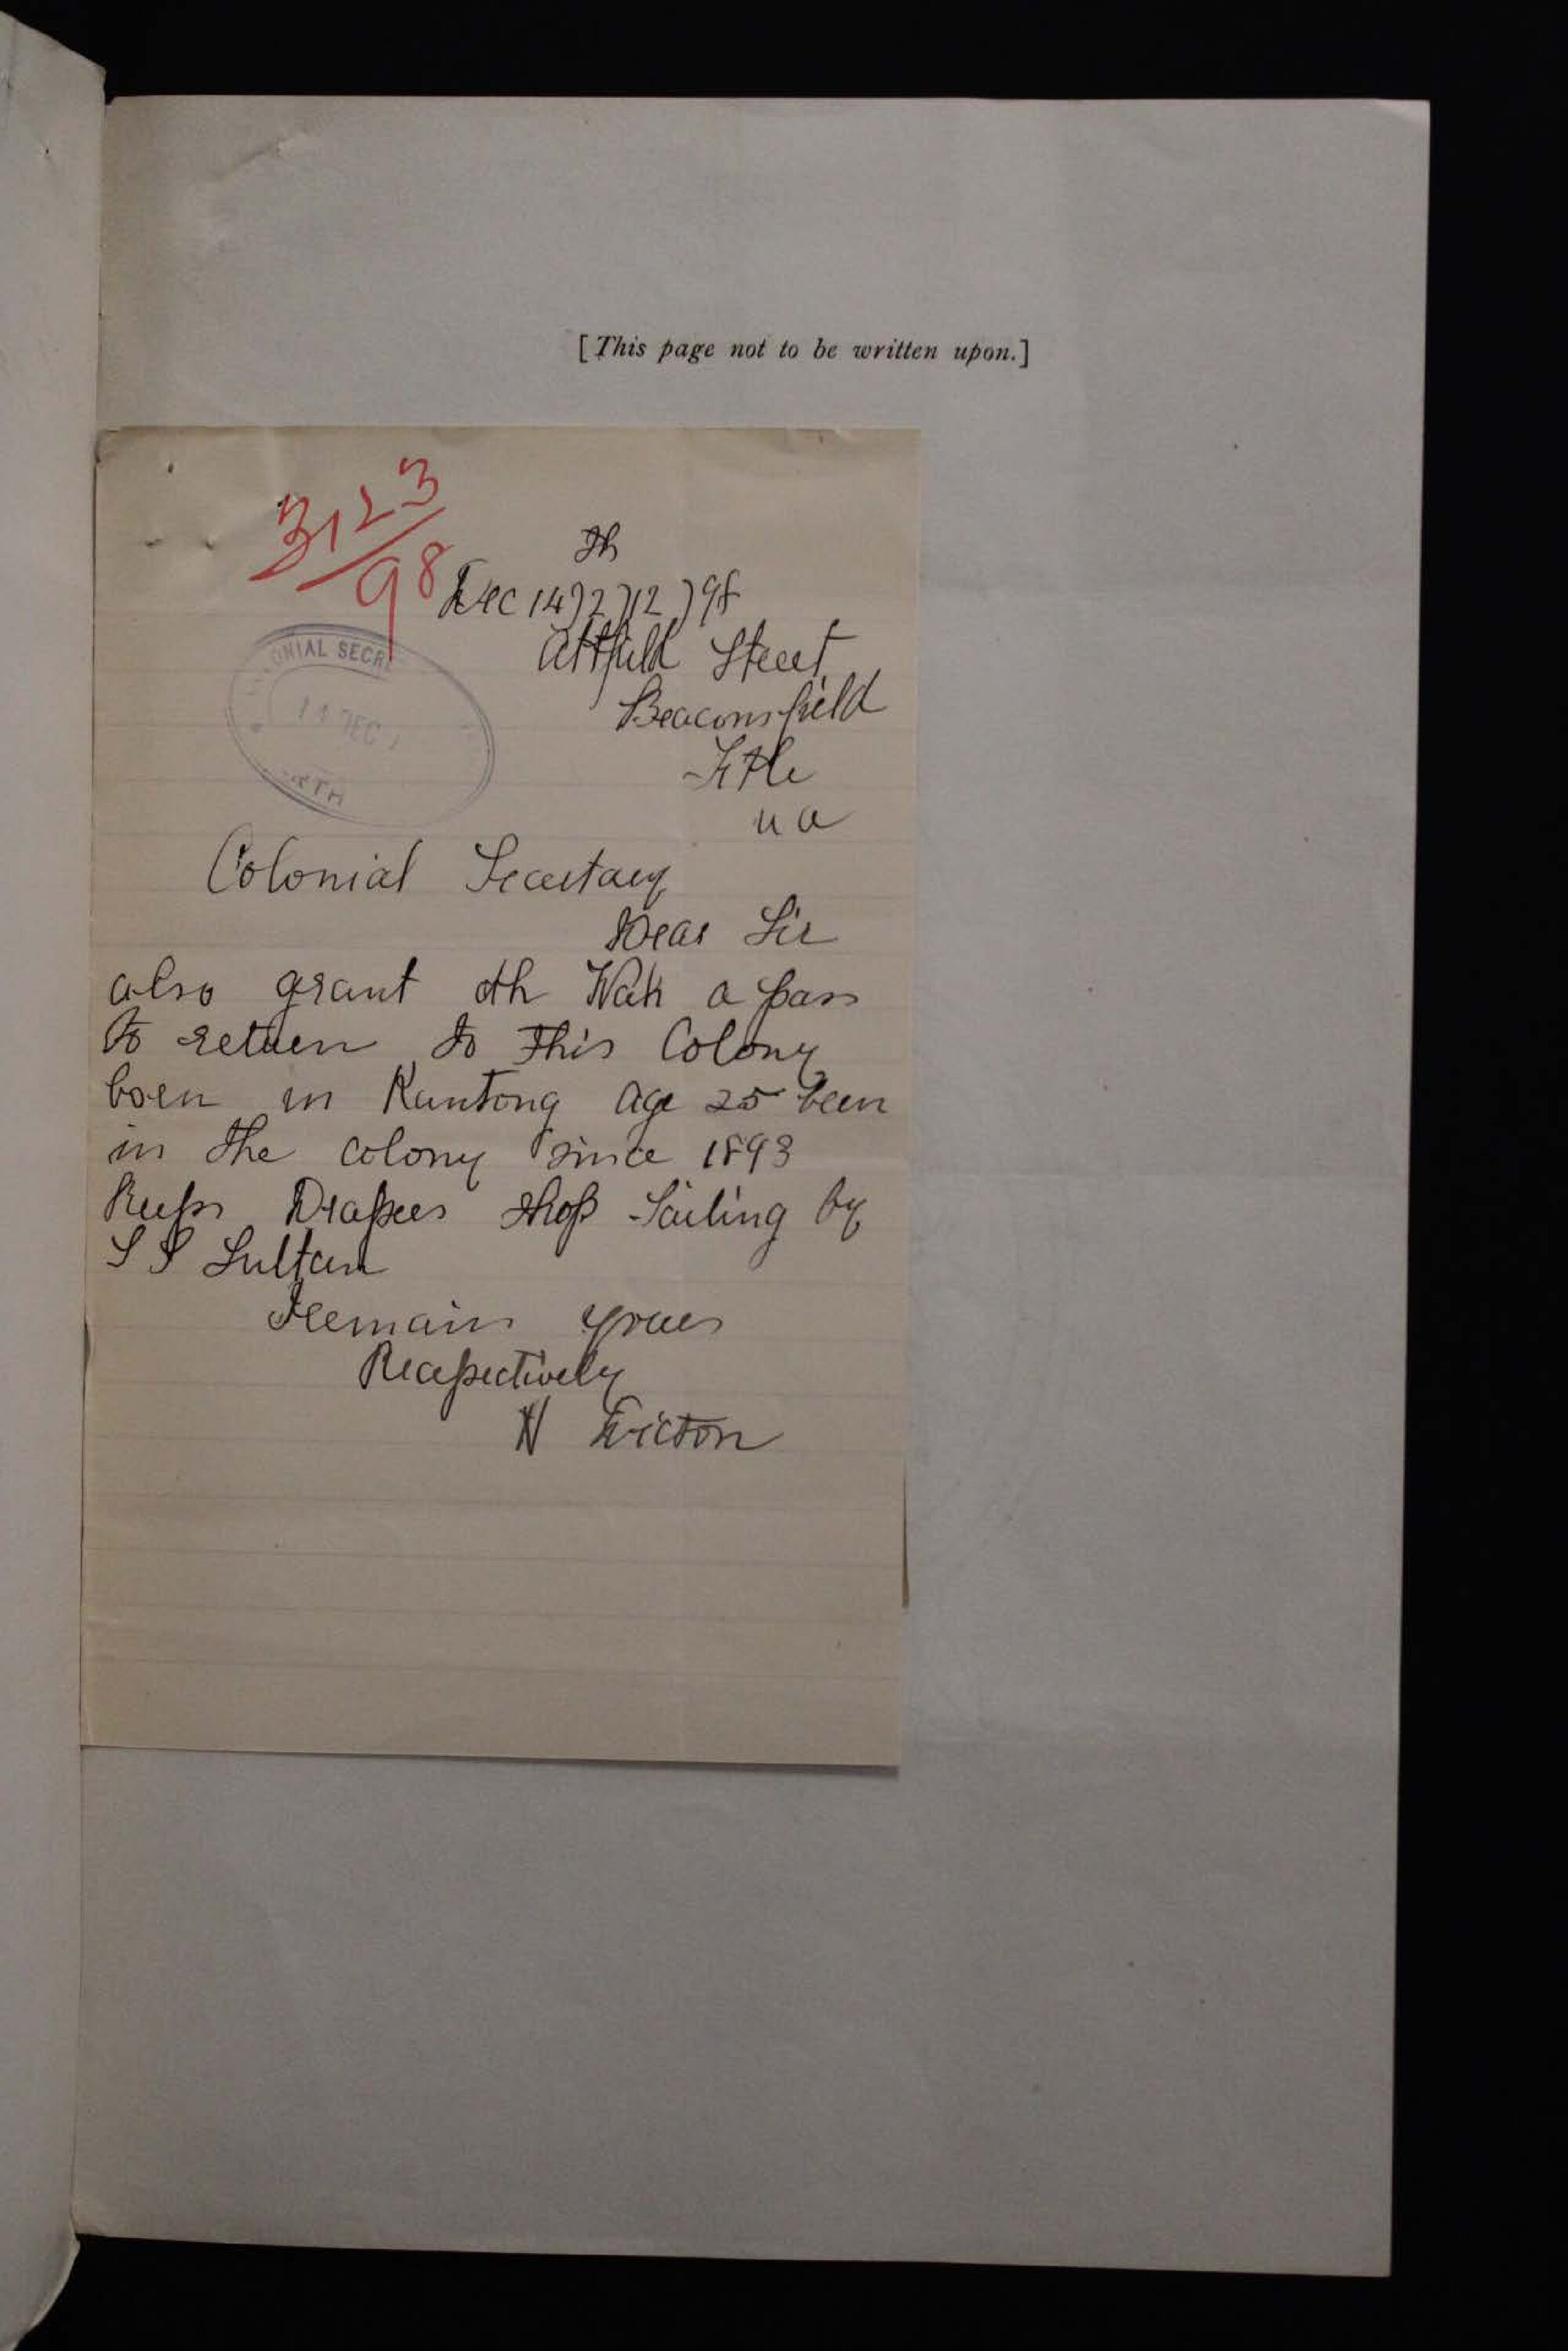 [This page not to be written upon.]
3123
98
th
Dec 14)2)12)98
Attfield Street
Beaconsfield
Ftle
WA
COLONIAL SECR
14 DEC
RTH
Colonial Secretary
Dear Sir
also grant Ah Wah a pass
to return to this Colony
born in Kuntong age 25 been
in the colony since 1893
Keeps Drapers shop Sailing by
S S Sultan
Remains yours
Recepectively